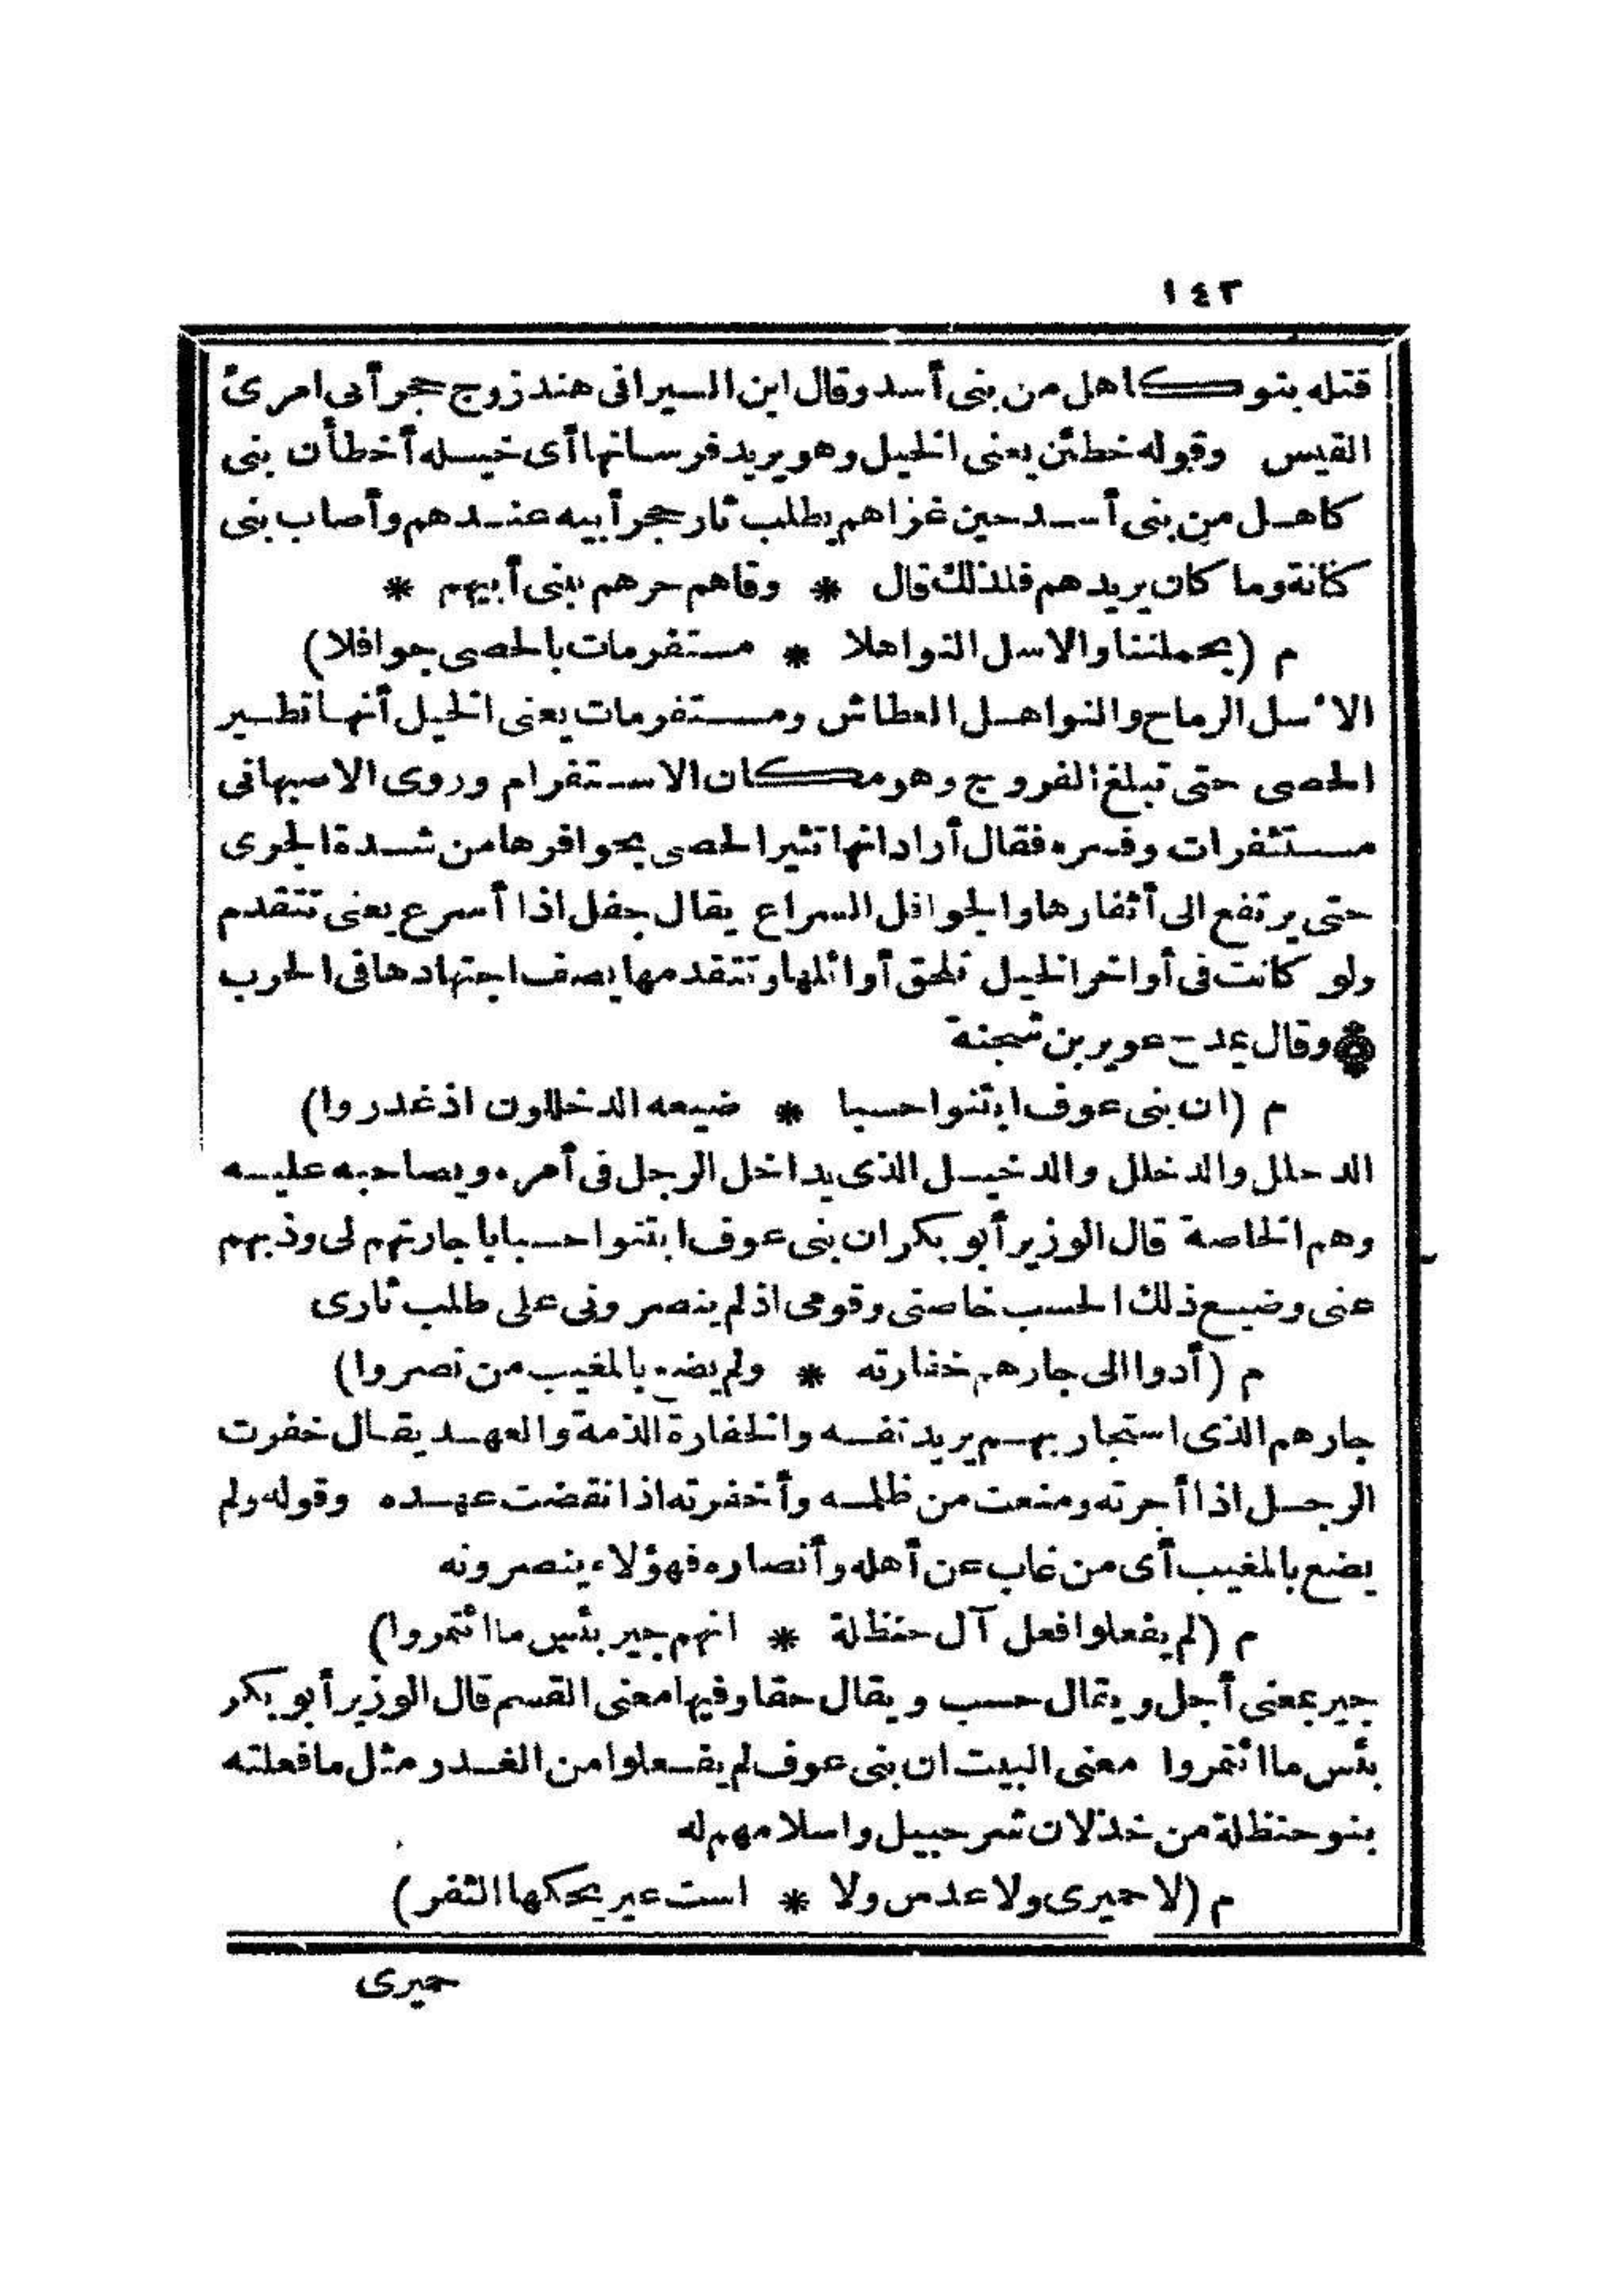 ١٤٢
قتله بنو كاهل من بنى أسد وقال ابن السيرافى هند زوج حجر أبى امرئ
القيس وقوله خطئن يعنى الخيل وهو يريد فرسانها أى خيله أخطأن بنى
كاهل من بنى أسد حين غزاهم يطلب ثار حجر أبيه عندهم وأصاب بنى
كنانة وما كان يريدهم فلذلك قال * وقاهم حرهم ببنى أبيهم *
م (يحملننا والاسل النواهلا * مستفرمات بالحصى جوافلا)
الأسل الرماح والنواهل العطاش ومستفرمات يعنى الخيل أنها تطير
الحصى حتى تبلغ الفروج وهو مكان الاستفرام وروى الاصبهانى
مستثفرات وفسره فقال أراد انها تثير الحصى بحوافرها من شدة الجرى
حتى يرتفع الى أثفارها والجوافل السراع يقال جفل اذا أسرع يعنى تتقدم
ولو كانت فى أواخر الخيل تلحق أوائلها وتتقدمها يصف اجتهادها فى الحرب
وقال يمدح عوير بن شجنة
م (ان بنى عوف ابتنوا حسبا * ضيعه الدخللون اذ غدروا)
الدحلل والدخلل والدخيل الذى يداخل الرجل فى أمره ويصاحبه عليه
وهم الخاصة قال الوزير أبو بكر ان بنى عوف ابتنوا حسبا باجارتهم لى وذبهم
عنى وضيع ذلك الحسب خاصتى وقومى اذ لم ينصرونى على طلب ثارى
م (أدوا الى جارهم خفارته * ولم يضع بالمغيب من نصروا)
جارهم الذى استجار بهم يريد نفسه والخفارة الذمة والعهد يقال خفرت
الرجل اذا أجرته ومنعت من ظلمه وأخفرته اذا نقضت عهده وقوله ولم
يضع بالمغيب أى من غاب عن أهله وأنصاره فهؤلاء ينصرونه
م (لم يفعلوا فعل آل حنظلة * انهم جير بئس ما ائتمروا)
جير بمعنى أجل ويقال حسب ويقال حقا وفيها معنى القسم قال الوزير أبو بكر
بئس ما ائتمروا معنى البيت ان بنى عوف لم يفعلوا من الغدر مثل ما فعلته
بنو حنظلة من خذلان شرحبيل واسلامهم له
م (لا حميرى ولا عدس ولا * است عير يحكها الثفر)
حميرى